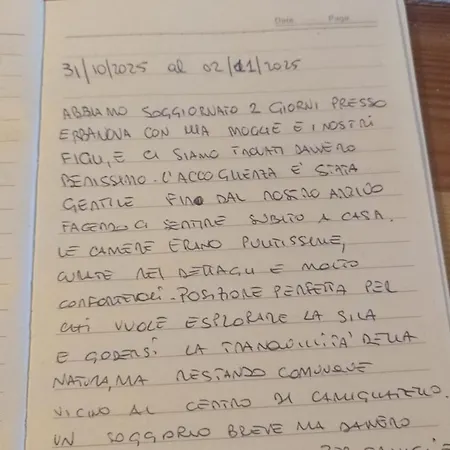 Date Page
31/10/2025 al 02/11/2025
ABBIAMO SOGGIORNATO 2 GIORNI PRESSO
ERBANOVA CON MIA MOGLIE E I NOSTRI
FIGLI, E CI SIAMO TROVATI DAVVERO
BENISSIMO. L'ACCOGLIENZA E' STATA
GENTILE FIN DAL NOSTRO ARRIVO
FACENDOCI SENTIRE SUBITO A CASA.
LE CAMERE ERANO PULITISSIME,
CURATE NEI DETTAGLI E MOLTO
CONFORTEVOLI. POSIZIONE PERFETTA PER
CHI VUOLE ESPLORARE LA SILA
E GODERSI LA TRANQUILLITA' DELLA
NATURA, MA RESTANDO COMUNQUE
VICINO AL CENTRO DI CAMIGLIATELLO.
UN SOGGIORNO BREVE MA DAVVERO